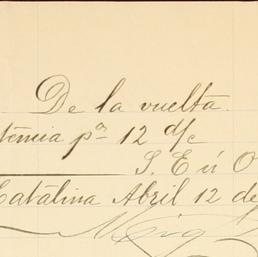 De la vuelta.
tencia pª 12 d/c
S. E ú O
Catalina Abril 12 de